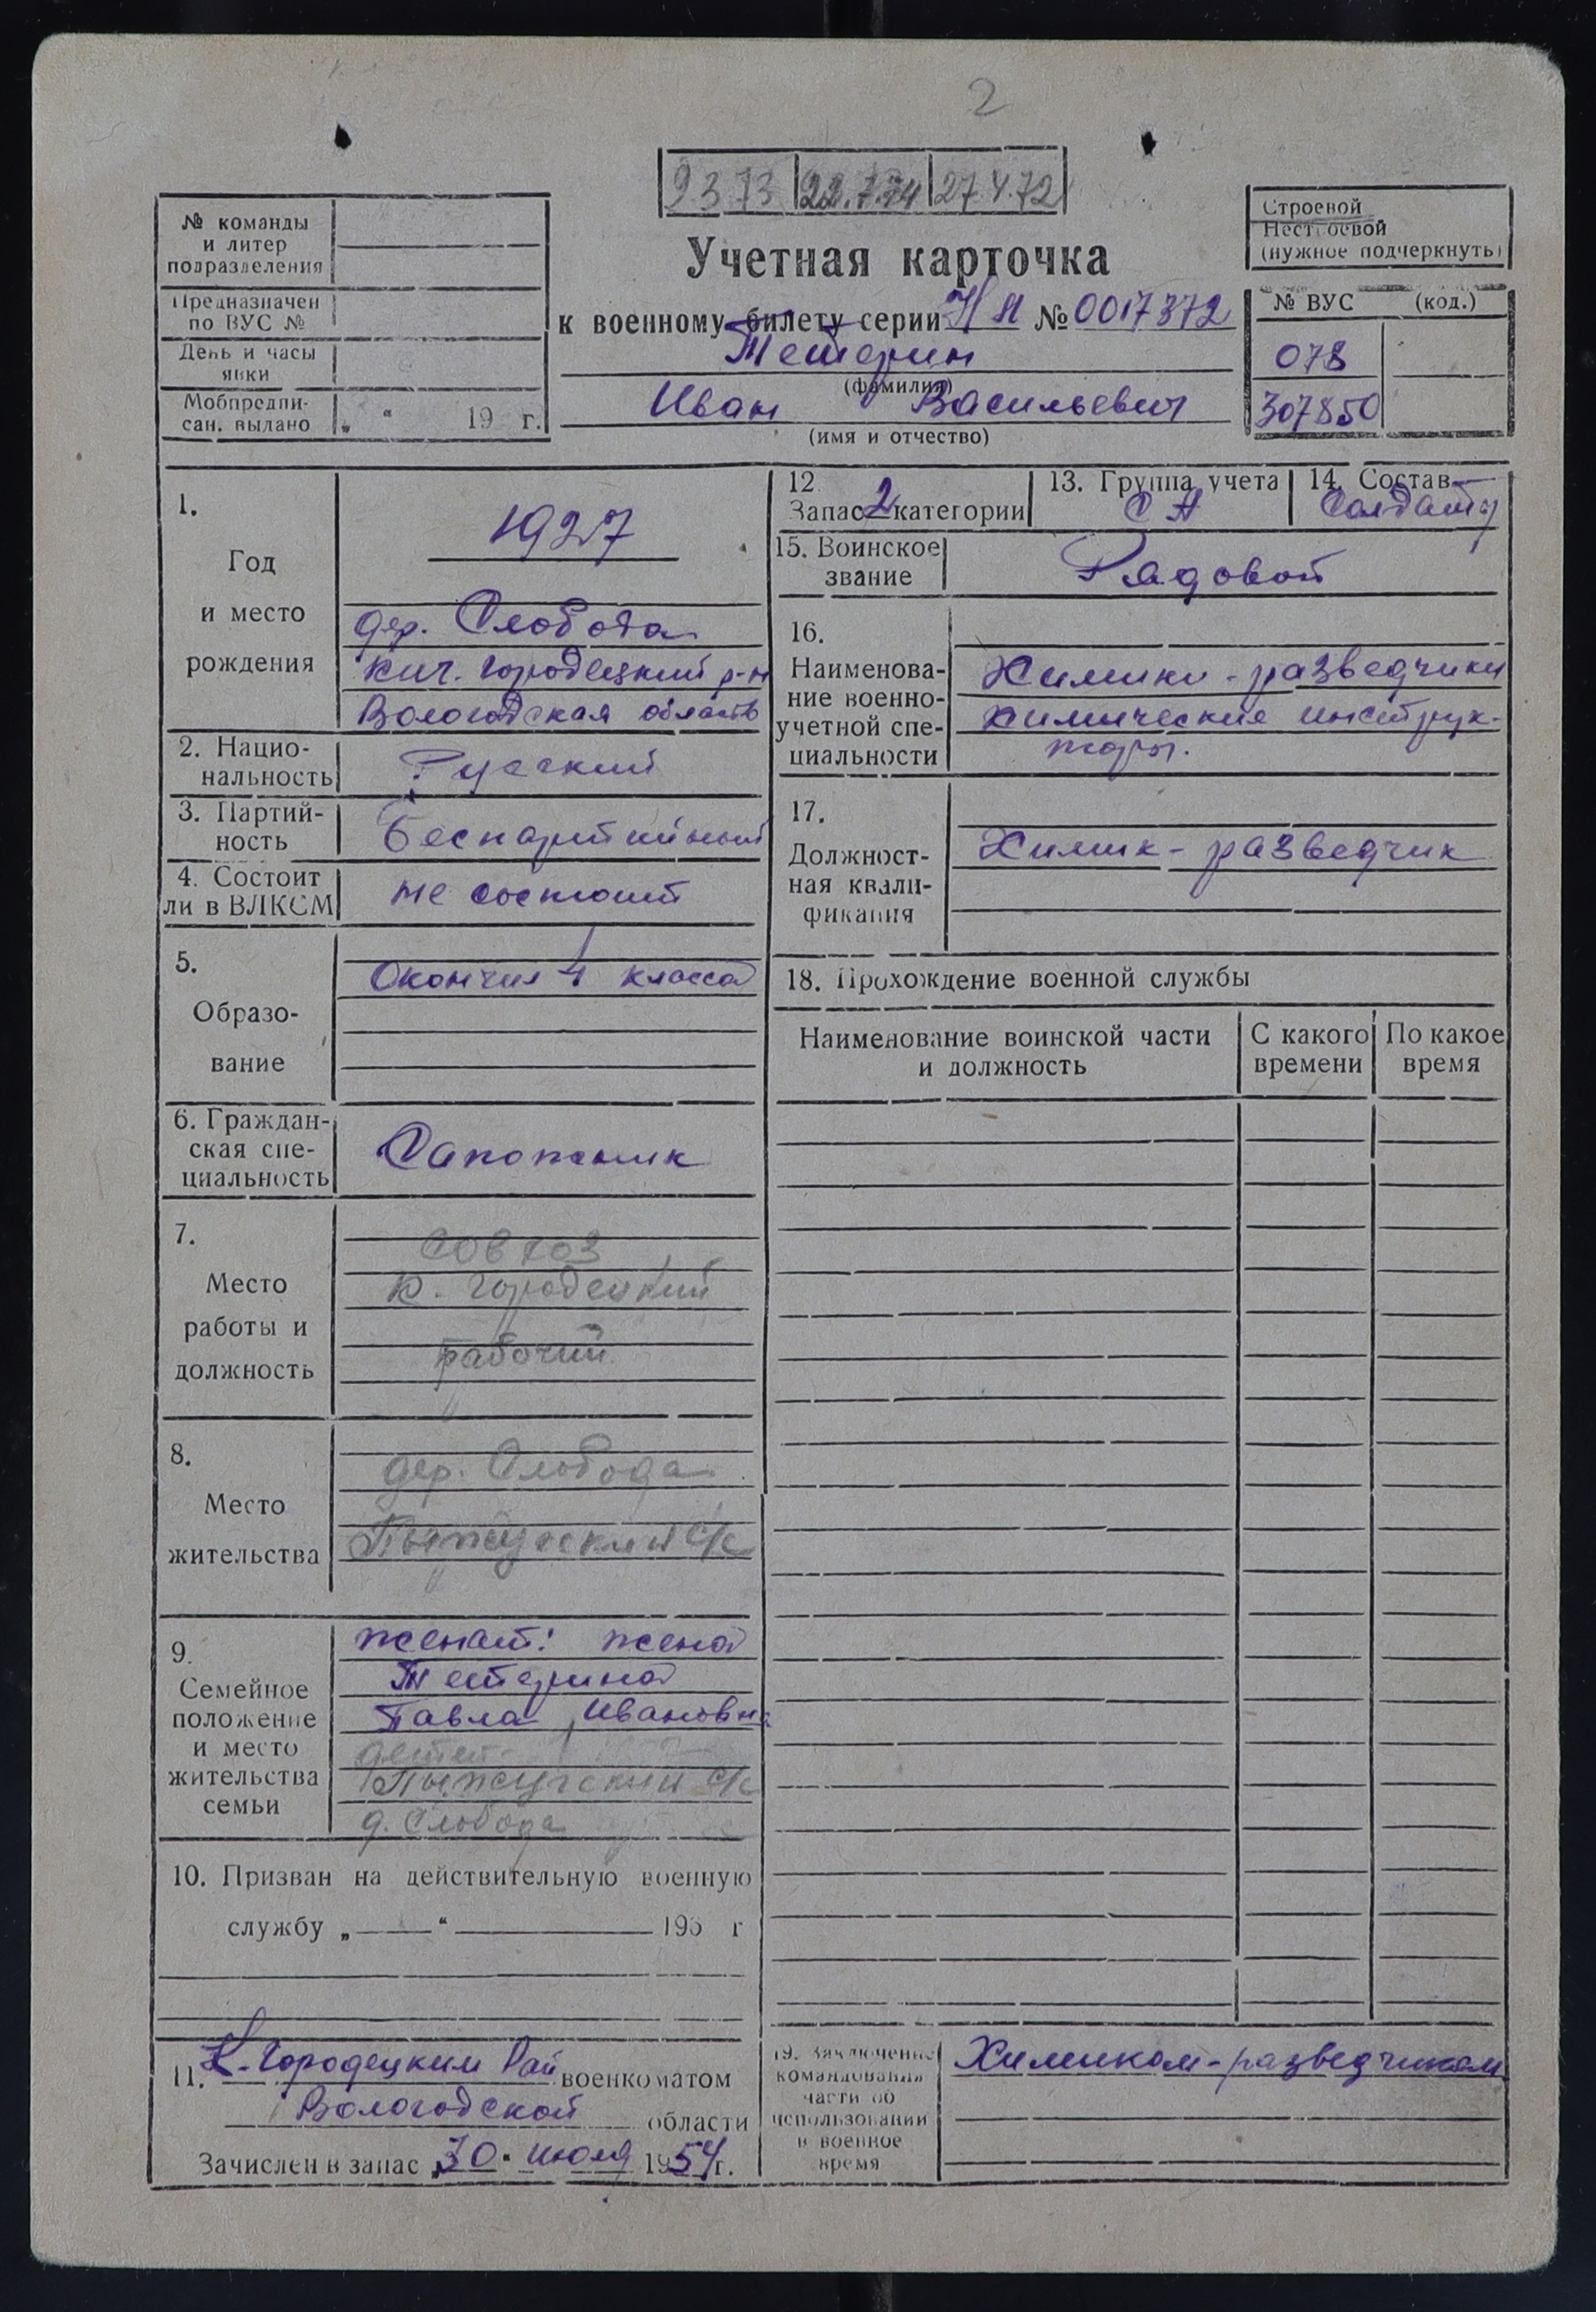 2
9 3 73 22.7.74 27.4.72
№ команды
и литер
подразделения
Предназначен
по ВУС №
День и часы
явки
Мобпредпи-
сан. выдано „ “ 19 г.
Учетная карточка
к военному билету серии НЯ № 0017372
Тетерин
(фамилия)
Иван Васильевич
(имя и отчество)
Строевой
Нестроевой
(нужное подчеркнуть)
№ ВУС (код.)
078
307850
1.
Год
и место
рождения
1927
дер. Слобода
Кич. Городецкий р-н
Вологодская область
2. Нацио-
нальность
Русский
3. Партий-
ность
Беспартийный
4. Состоит
ли в ВЛКСМ
не состоит
5.
Образо-
вание
Окончил 4 класса
6. Граждан-
ская спе-
циальность
Сапожник
7.
Место
работы и
должность
совхоз
К. Городецкий
рабочий
8.
Место
жительства
дер. Слобода
Пыжугский с/с
9.
Семейное
положение
и место
жительства
семьи
женат: жена
Тетерина
Павла Ивановна
детей -
Пыжугский с/с
д. Слобода
10. Призван на действительную военную
службу „ “ 195 г
11. К-Городецким Рай военкоматом
Вологодской области
Зачислен в запас „30“ июля 1954 г.
12.
Запас 2 категории
13. Группа учета
СА
14. Состав
Солдаты
15. Воинское
звание
Рядовой
16.
Наименова-
ние военно-
учетной спе-
циальности
Химики-разведчики
химические инструк-
торы.
17.
Должност-
ная квали-
фикация
Химик-разведчик
18. Прохождение военной службы
Наименование воинской части
и должность
С какого
времени
По какое
время
19. Заключение
командования
части об
использовании
в военное
время
Химиком-разведчиком